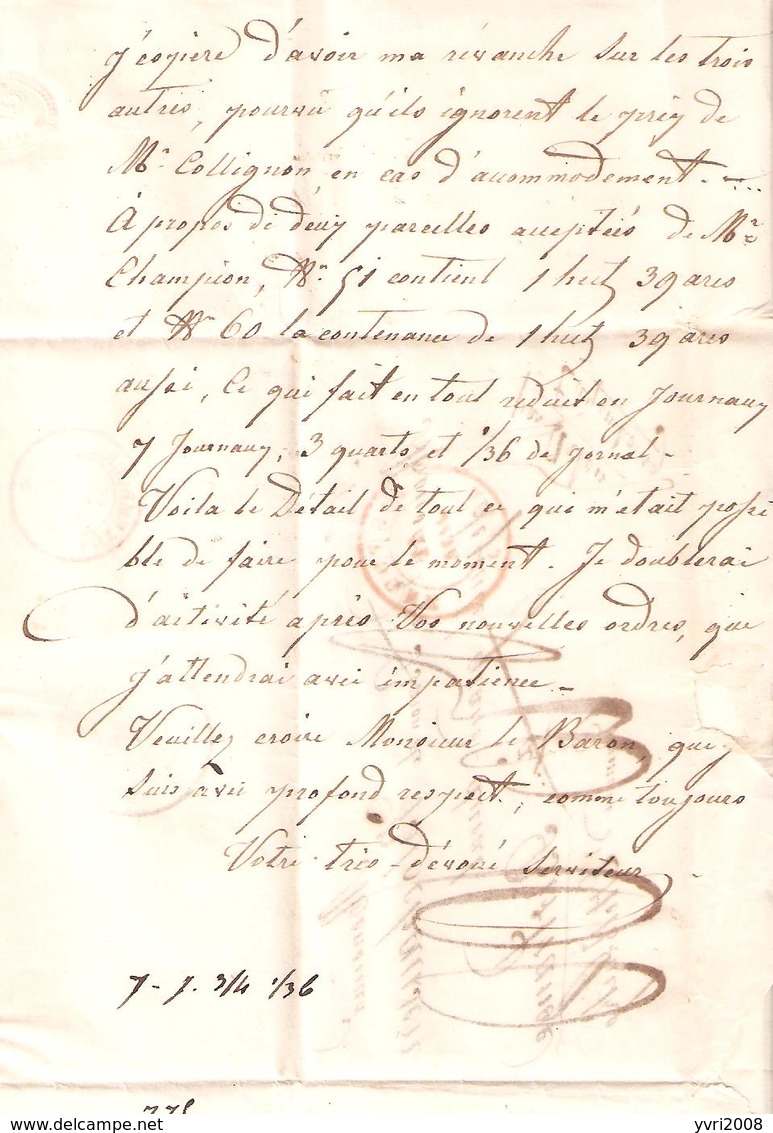 j'espère d'avoir ma revanche sur les trois
autres, pourvû qu'ils ignorent le prix de
Mr. Collignon, en cas d'accommodement. —
À propos de deux parcelles acceptées de Mr.
Champion, Nn. 51 contient 1 hect 39 ares
et Nn 60 la contenance de 1 hect 39 ares
aussi, Ce qui fait en tout reduit en Journaux
7 Journaux, 3 quarts, et 1/36 de Jornal -
Voila le Détail de tout ce qui m'etait possi
ble de faire pour le moment. Je doublerai
d'activité après Vos nouvelles ordres, que
j'attendrai avec impatience -
Veuillez croire Monsieur le Baron, que
suis avec profond respect, comme toujours
Votre très-dévoué serviteur
7 - J. 3/4 1/36
yvri2008